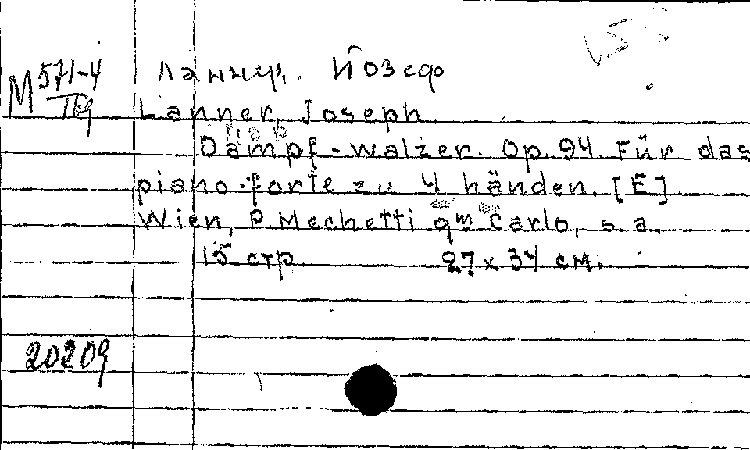 M 571-4 Ланнер, Йозеф
Lanner, Joseph
Dampf-walzer. Op. 94. Für das
piano-forte zu 4 händen. [E]
Wien, P. Mechetti qm Carlo, s. a.
15 стр. 27 x 34 см.
20209